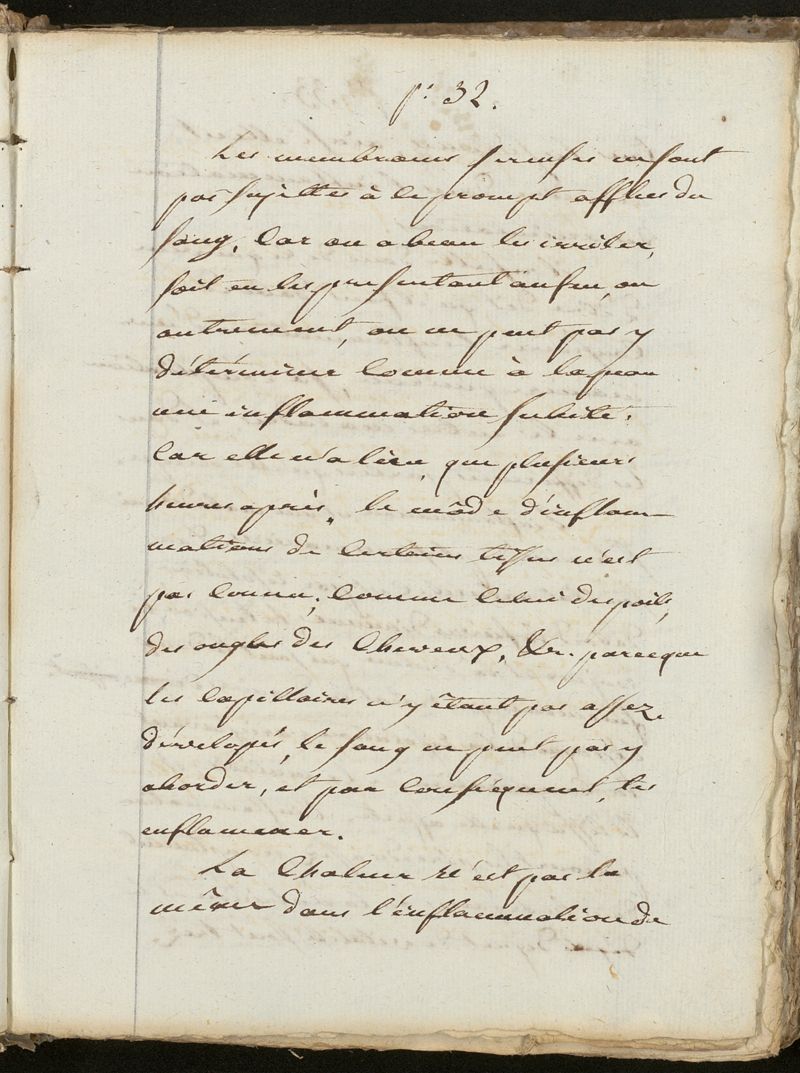 p: 32.
Les membranes sereuses ne sont
pas sujettes à ce prompt afflux du
sang. Car on a beau les irriter,
soit en les presentant au feu, ou
autrement, on ne peut pas y
déterminer comme à la peau
une inflammation subite.
Car elle n'a lieu, que plusieurs
heures après, le môde d'inflam-
mations de certains tissus n'est
pas connu; comme celui des poils,
des ongles des cheveux, &c. parceque
les capillaires n'y êtant pas assez
dévelopés, le sang ne peut pas y
aborder, et par conséquent, les
enflammer.
La Chaleur n'est pas la
même dans l'inflammation de